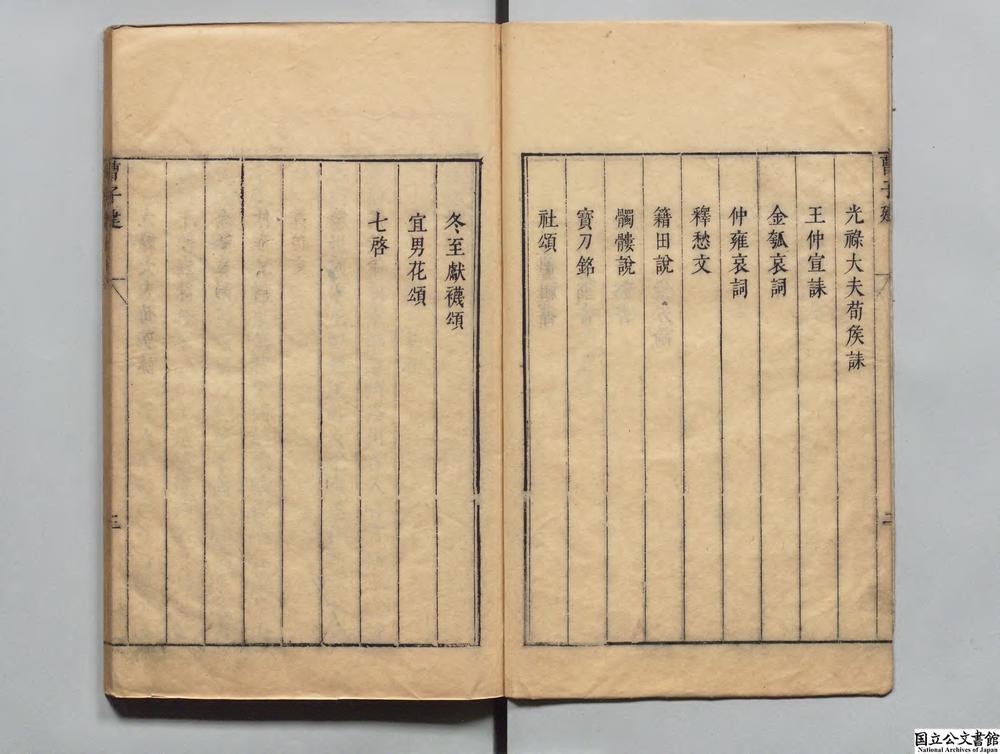 曹子建
二
光祿大夫荀侯誄
王仲宣誄
金瓠哀詞
仲雍哀詞
釋愁文
籍田說
髑髏說
寶刀銘
社頌
冬至獻襪頌
宜男花頌
七啓
曹子建
三
国立公文書館
National Archives of Japan